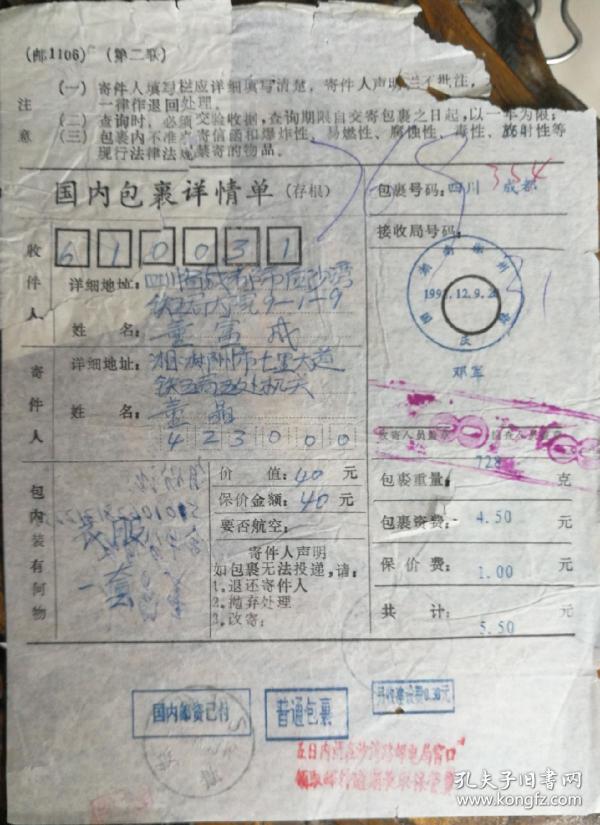 (邮1106) (第二联)
注意
(一) 寄件人填写栏应详细填写清楚，寄件人声明栏不批注，
一律作退回处理。
(二) 查询时，必须交验收据，查询期限自交寄包裹之日起，以一年为限；
(三) 包裹内不准夹寄信函和爆炸性、易燃性、腐蚀性、毒性、放射性等
现行法律法规禁寄的物品。
国内包裹详情单 (存根)
包裹号码： 四川 成都
354
接收局号码：
收件人
6 1 0 0 3 1
详细地址：四川省成都市
9-1-9
姓 名：童富成
1992.12.9.
邓军
寄件人
详细地址：湘郴州市七里大道
铁五局五处机关
姓 名：童晶
4 2 3 0 0 0
收寄人员签章
包内装有何物
衣服
一套
价 值：40 元
保价金额：40 元
要否航空：
寄件人声明
如包裹无法投递，请：
1.退还寄件人
2.抛弃处理
3.改寄：
包裹重量： 728 克
包裹资费： 4.50 元
保 价 费： 1.00 元
共 计： 5.50 元
国内邮资已付
普通包裹
0.30元
五日内到沙湾路邮电局窗口
领取邮件逾期收取保管费
孔夫子旧书网
www.kongfz.com